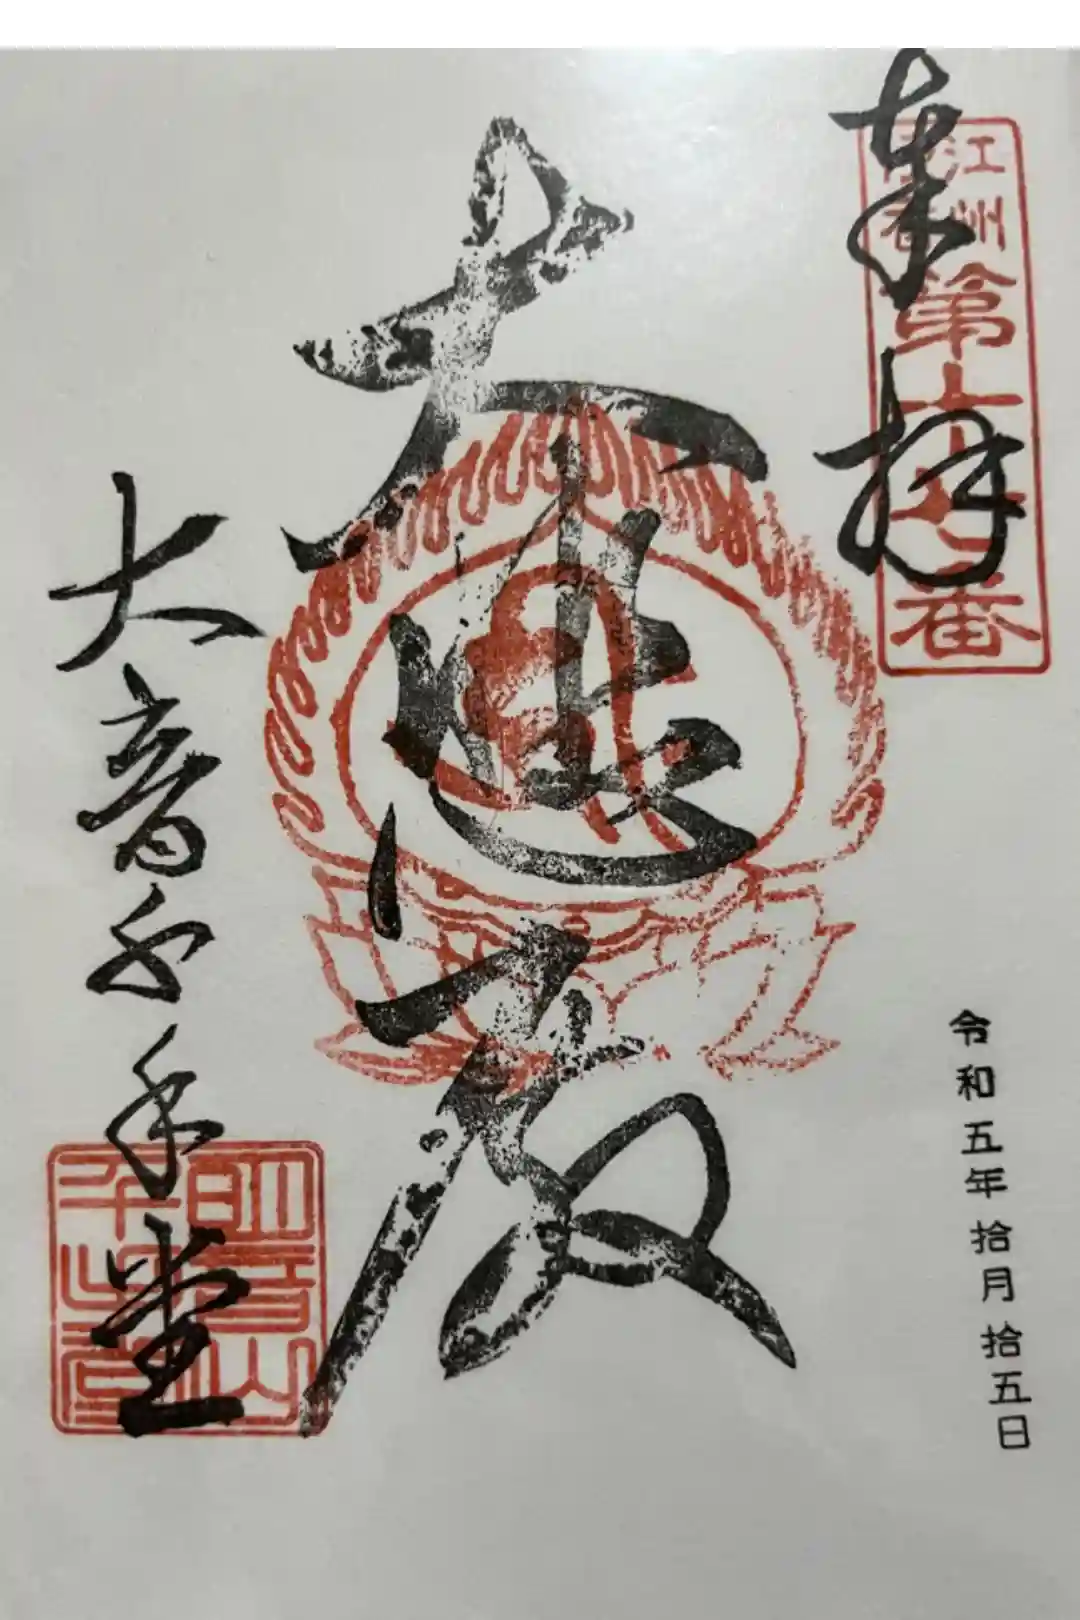 奉拝
江州
伊香
第十番
大悲殿
大音千手堂
令和五年拾月拾五日